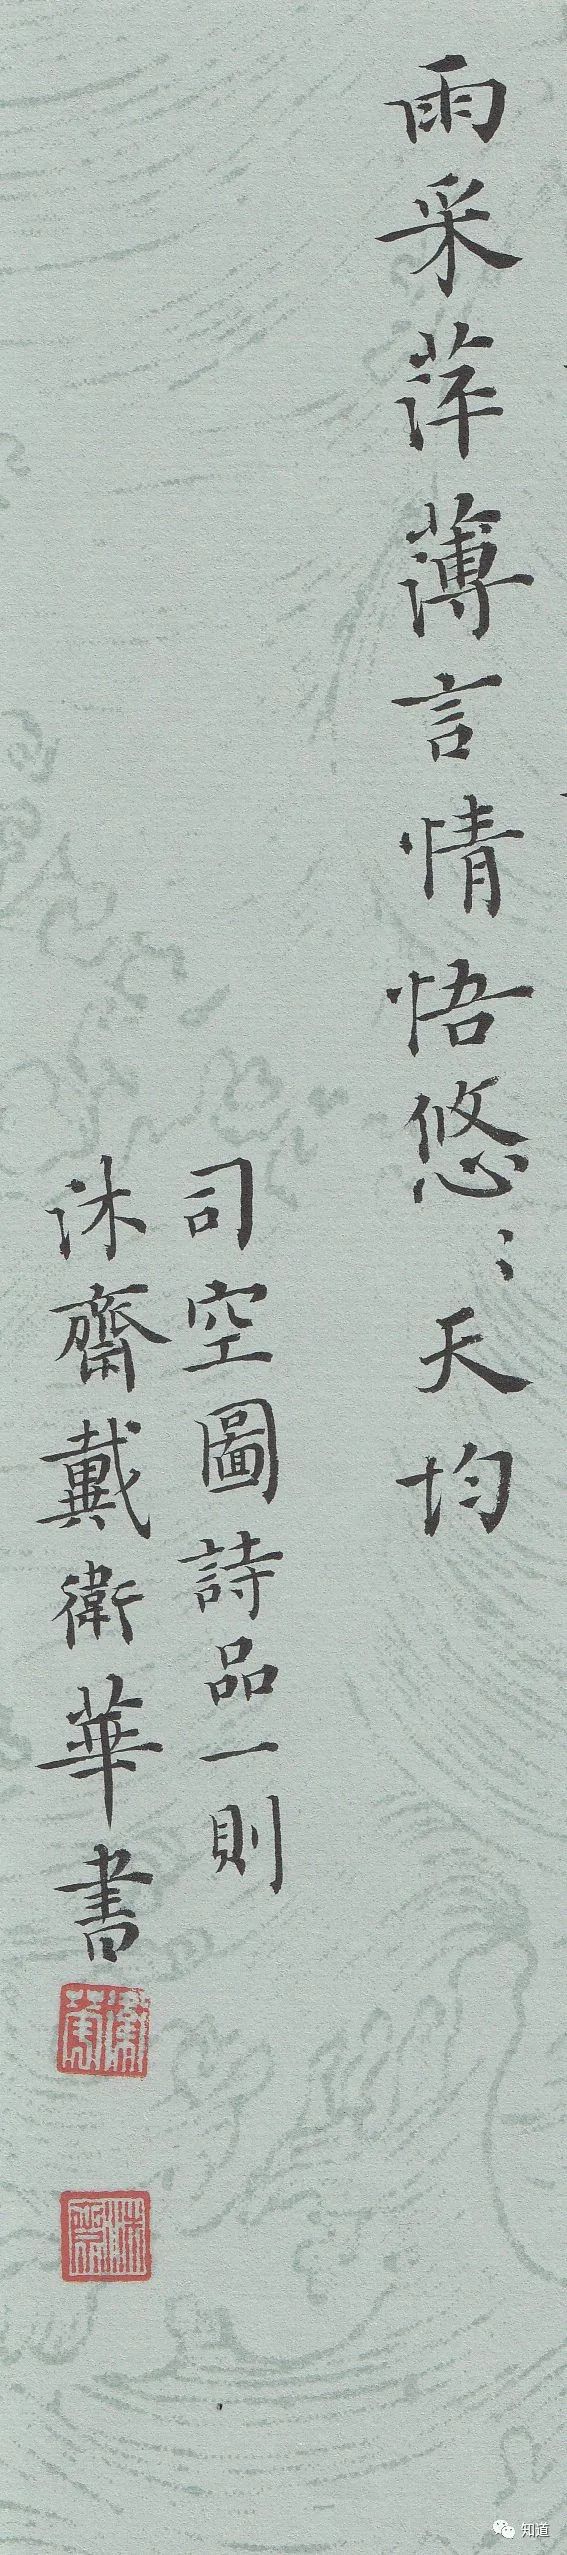 雨采萍薄言情悟悠〻天均
司空圖詩品一則
沐齋戴衛華書
衛華
沐齋
知道